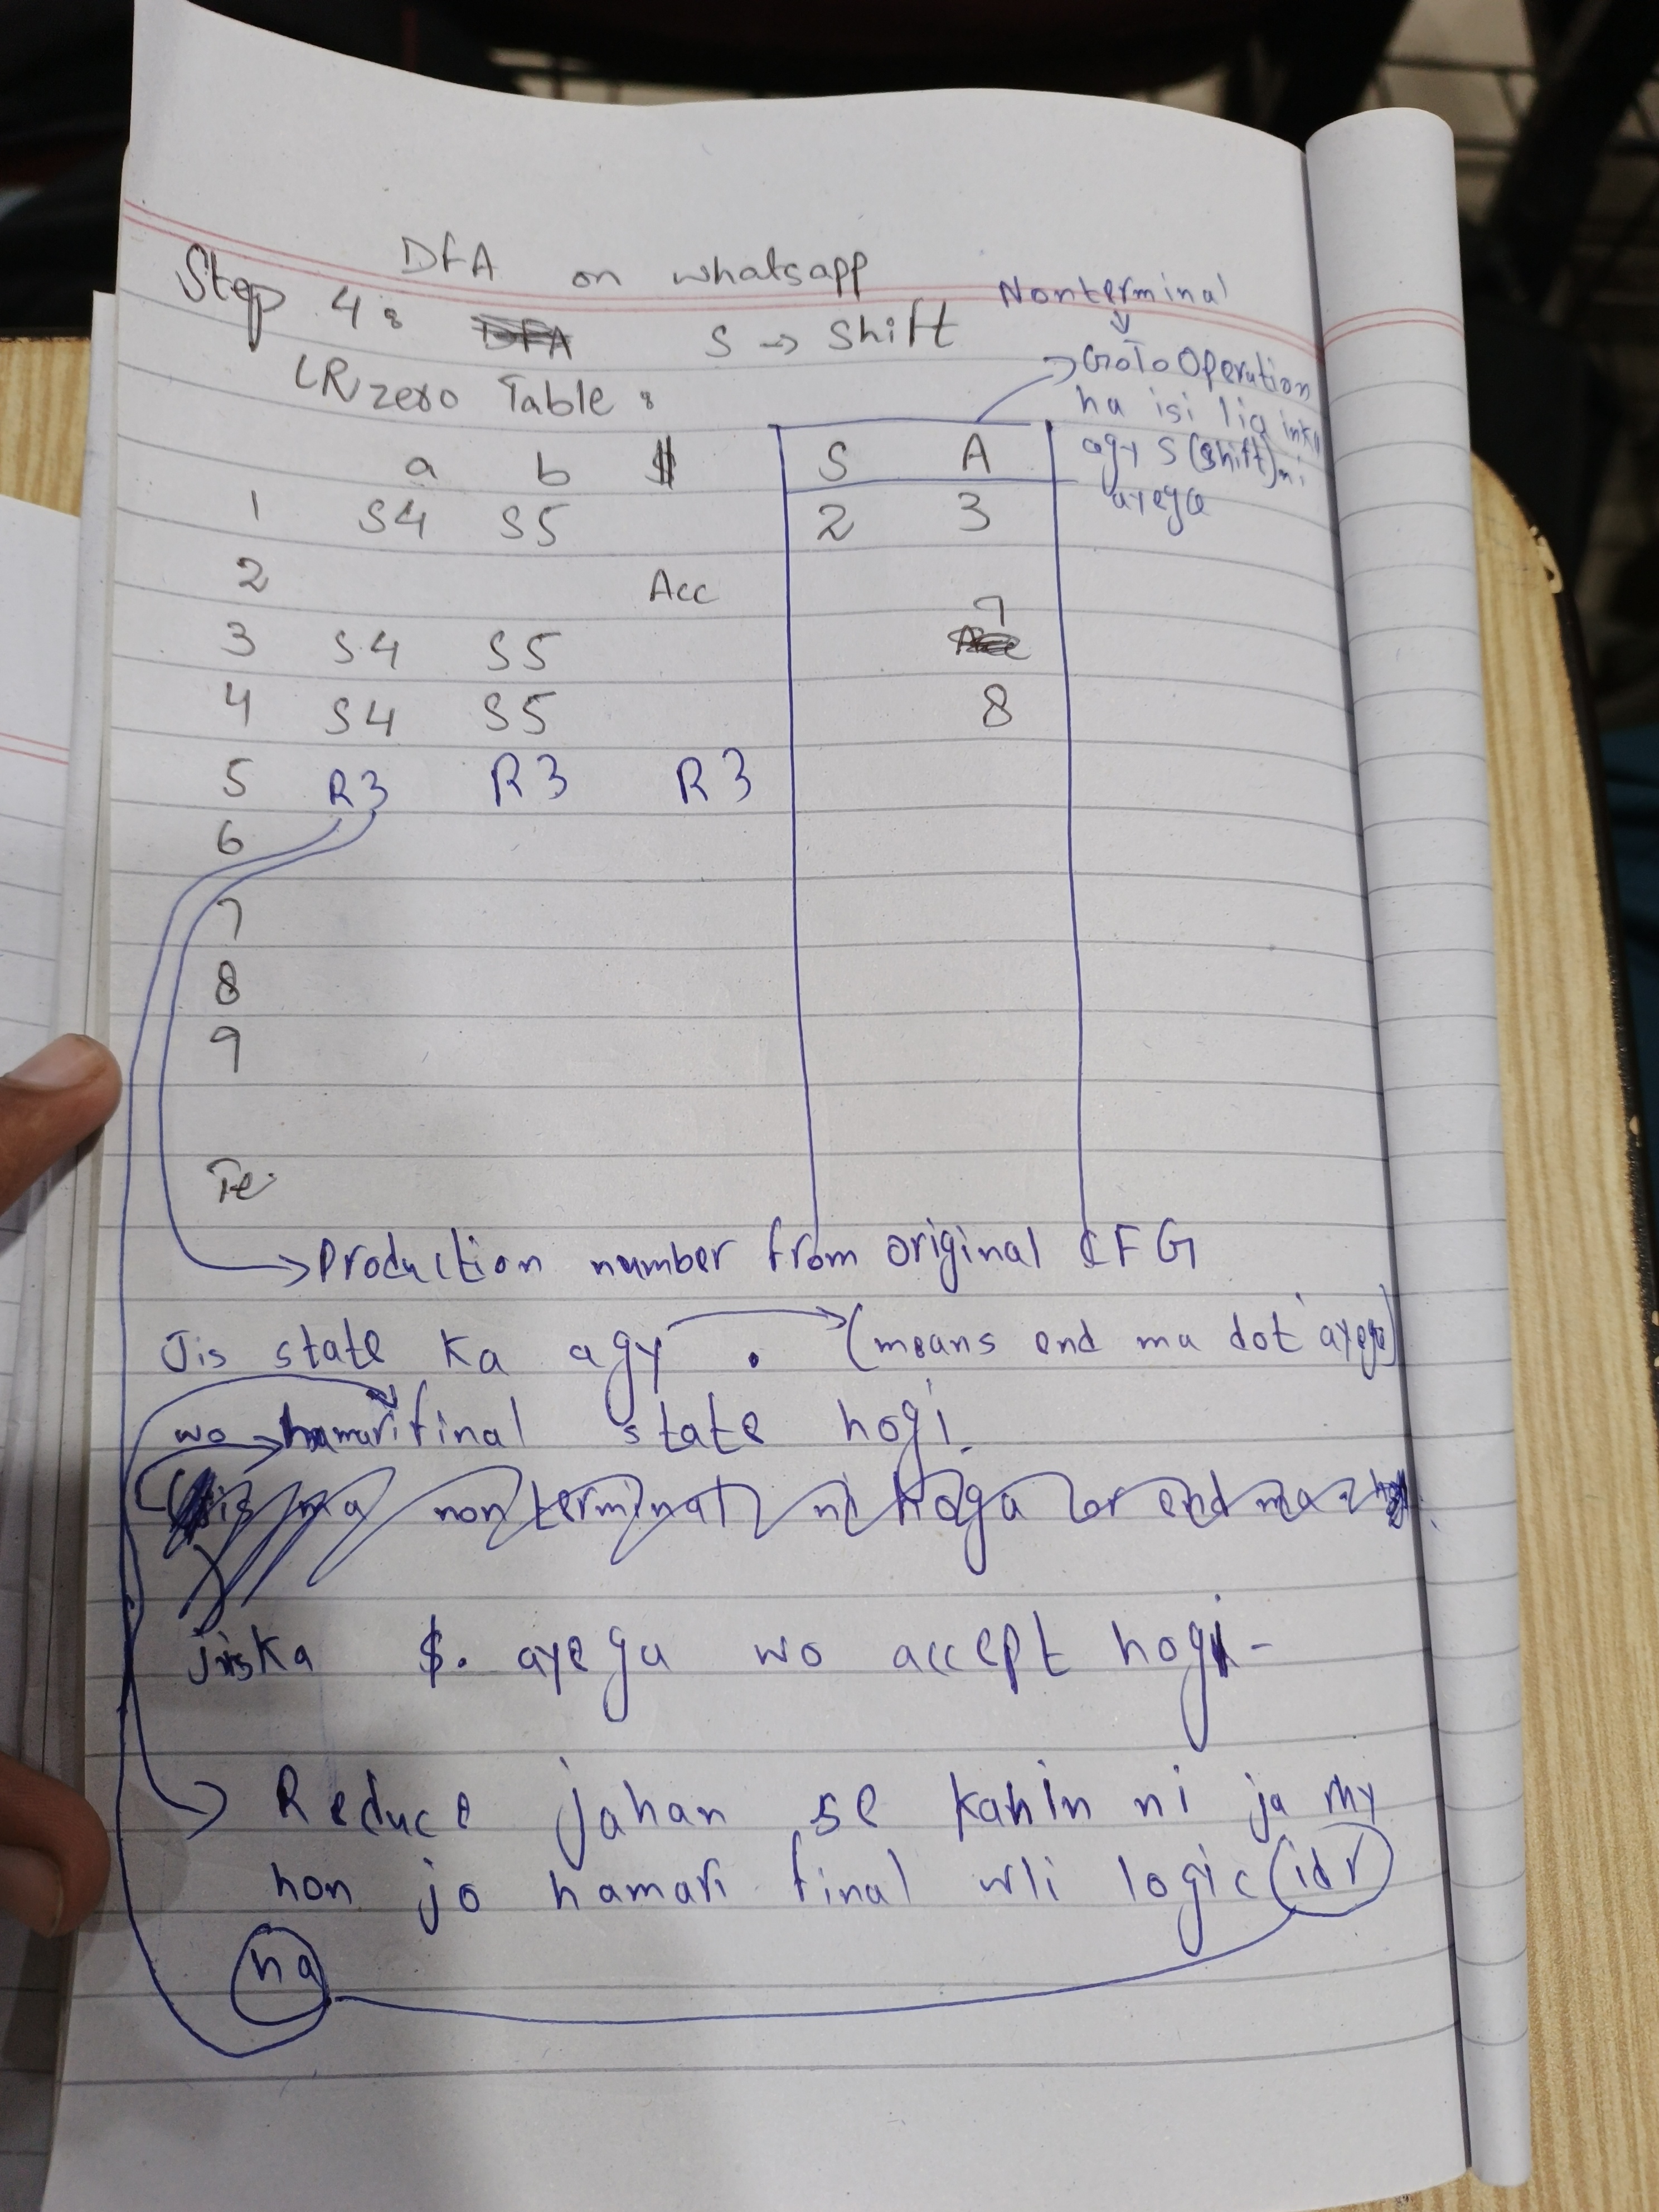 DFA on whatsapp
Step 4: S → Shift
LR zero Table:
Nonterminal
GoTo Operation
ha isi lia inka
agy S (shift) ni
ayega
a b $ S A
1 S4 S5 2 3
2 Acc
3 S4 S5 7
4 S4 S5 8
5 R3 R3 R3
6
7
8
9
Te
→ Production number from original CFG
Jis state ka agy . → (means end ma dot ayega)
wo hamari final state hogi.
jis ma non terminal ni hoga or end ma
jiska $. ayega wo accept hogi-
→ Reduce jahan se kahin ni ja rhy
hon jo hamari final wli logic idr
ha